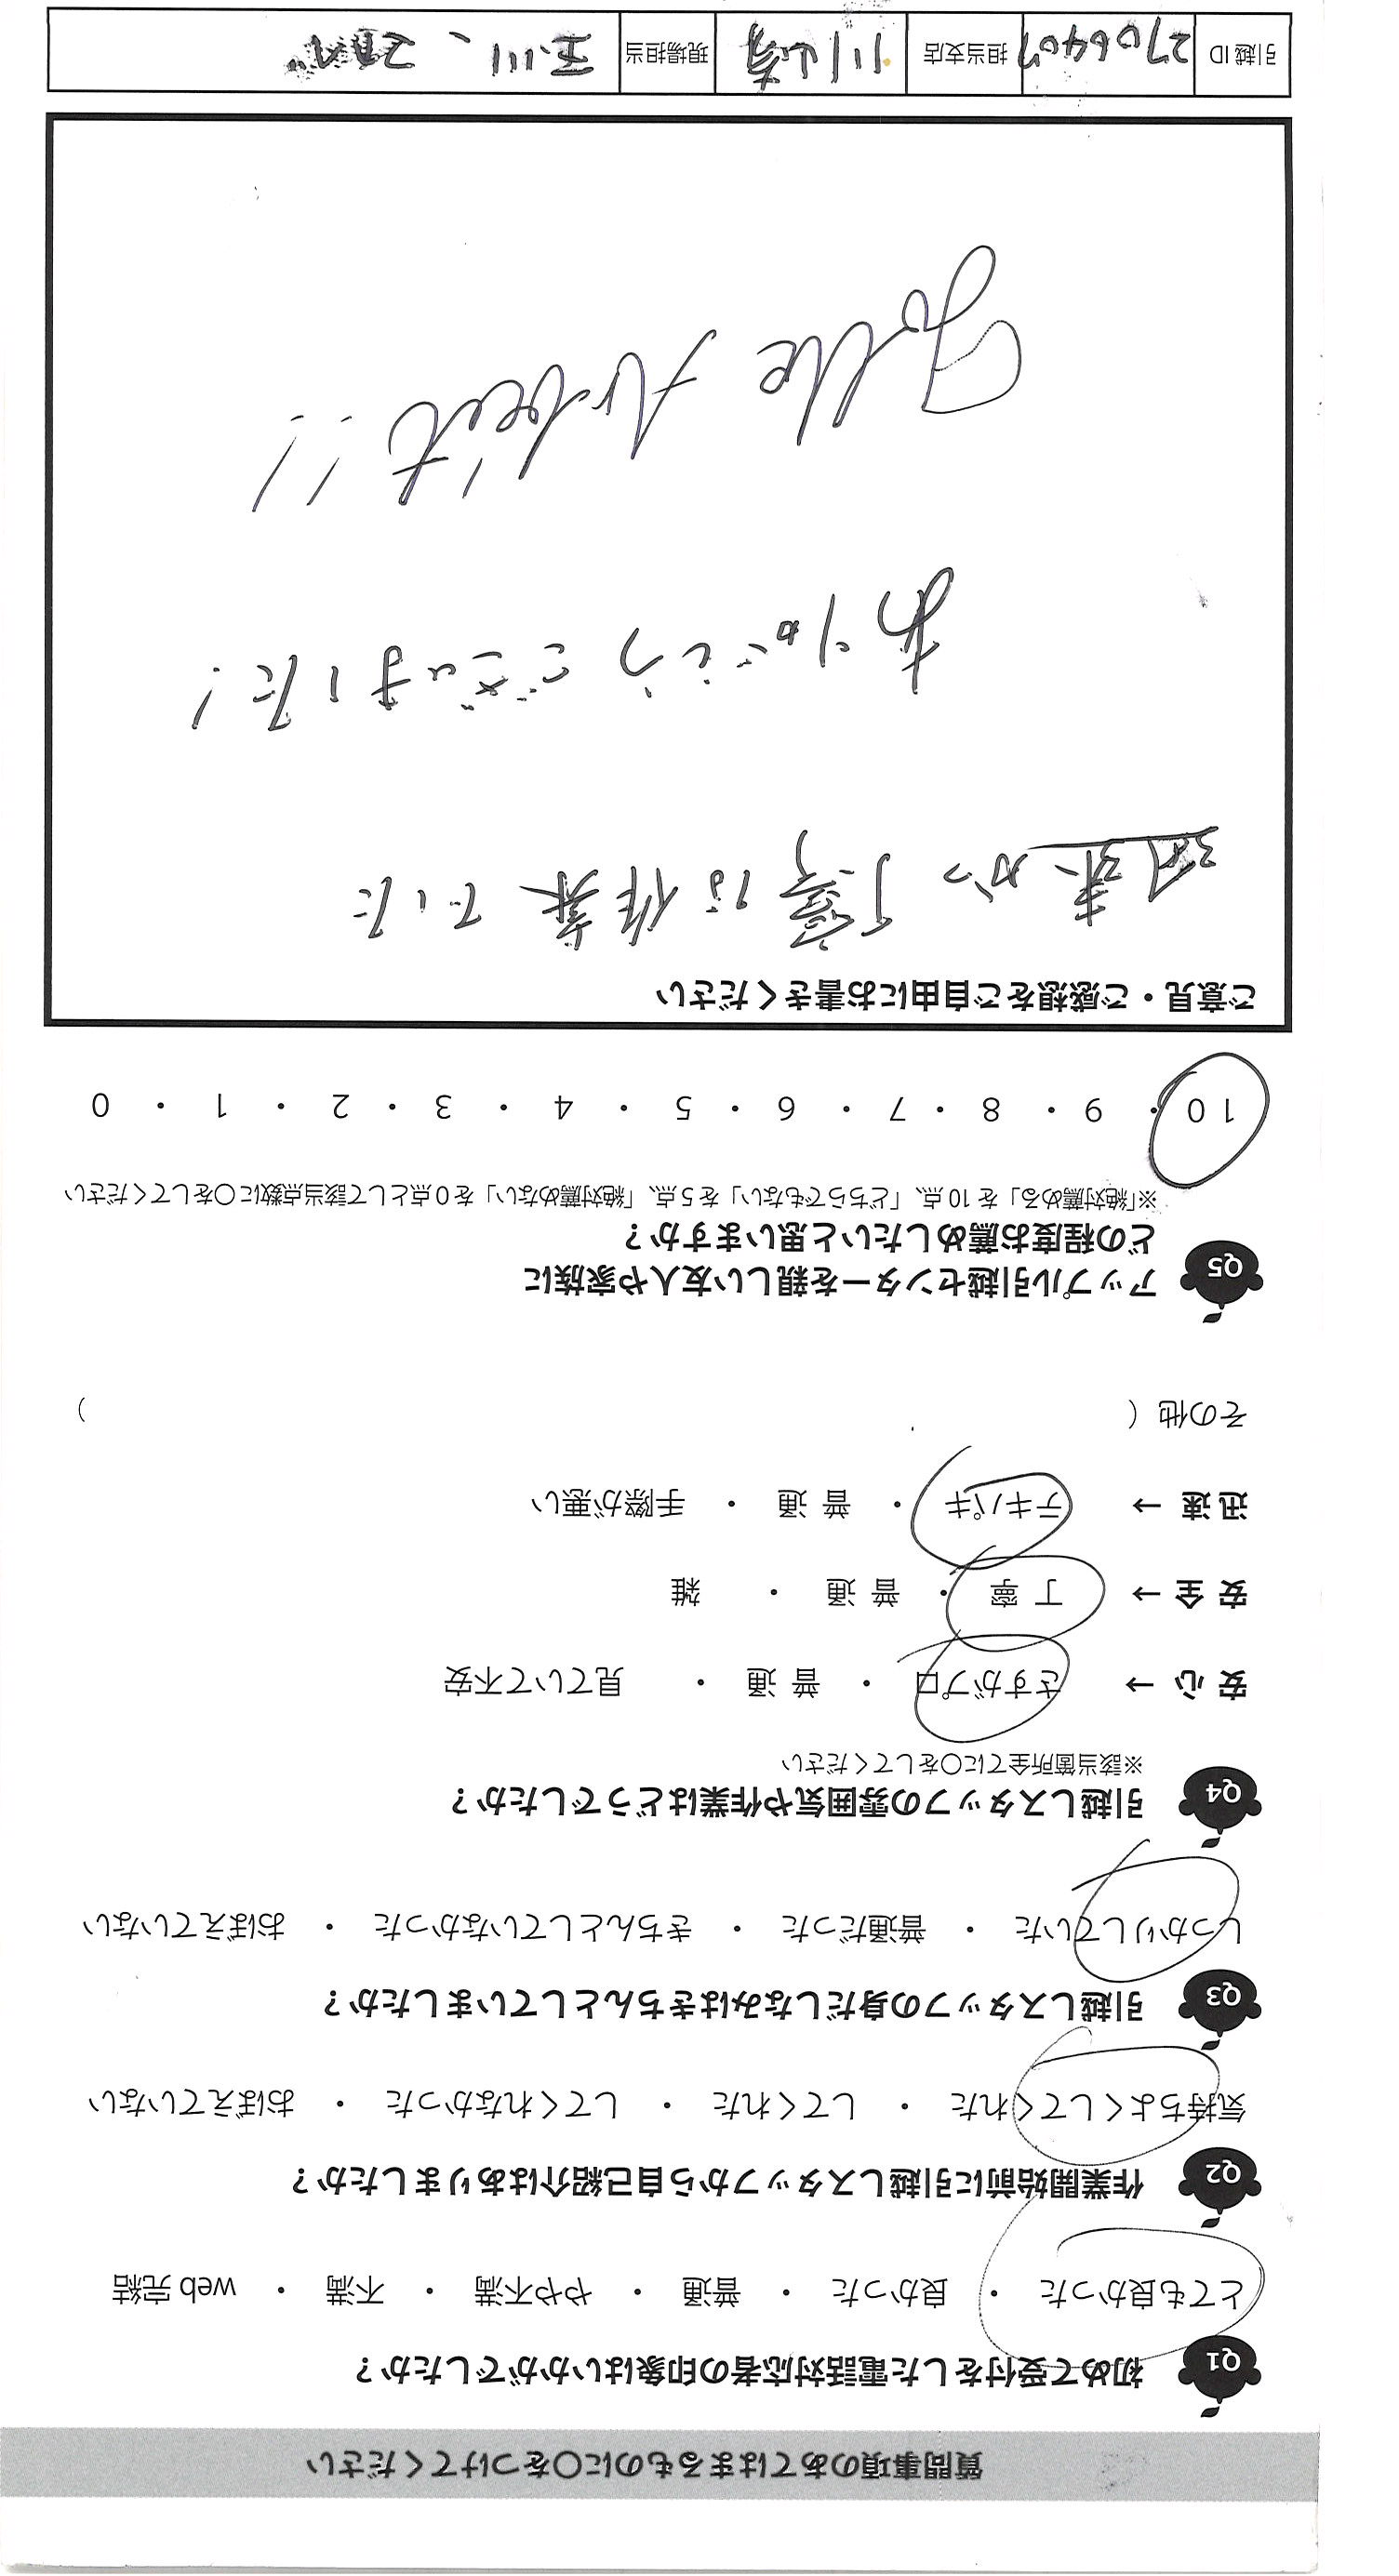 質問事項のあてはまるものに○をつけてください
Q1 初めて受付をした電話対応者の印象はいかがでしたか？
とても良かった ・ 良かった ・ 普通 ・ やや不満 ・ 不満 ・ web 完結
Q2 作業開始前に引越しスタッフから自己紹介はありましたか？
気持ちよくしてくれた ・ してくれた ・ してくれなかった ・ おぼえていない
Q3 引越しスタッフの身だしなみはきちんとしていましたか？
しっかりしていた ・ 普通だった ・ きちんとしていなかった ・ おぼえていない
Q4 引越しスタッフの雰囲気や作業はどうでしたか？
※該当箇所全てに○をしてください
安 心 → さすがプロ ・ 普 通 ・ 見ていて不安
安 全 → 丁 寧 ・ 普 通 ・ 雑
迅 速 → テキパキ ・ 普 通 ・ 手際が悪い
その他（ ）
Q5 アップル引越センターを親しい友人や家族に
どの程度お薦めしたいと思いますか？
※「絶対薦める」を 10 点、「どちらでもない」を 5 点、「絶対薦めない」を 0 点として該当点数に○をしてください
10 ・ 9 ・ 8 ・ 7 ・ 6 ・ 5 ・ 4 ・ 3 ・ 2 ・ 1 ・ 0
ご意見・ご感想をご自由にお書きください
迅束かつ丁寧な作業でした
ありがとうございました！
Tolle Arbeit!!
引越 ID 2706407 担当支店 川崎 現場担当 玉川、